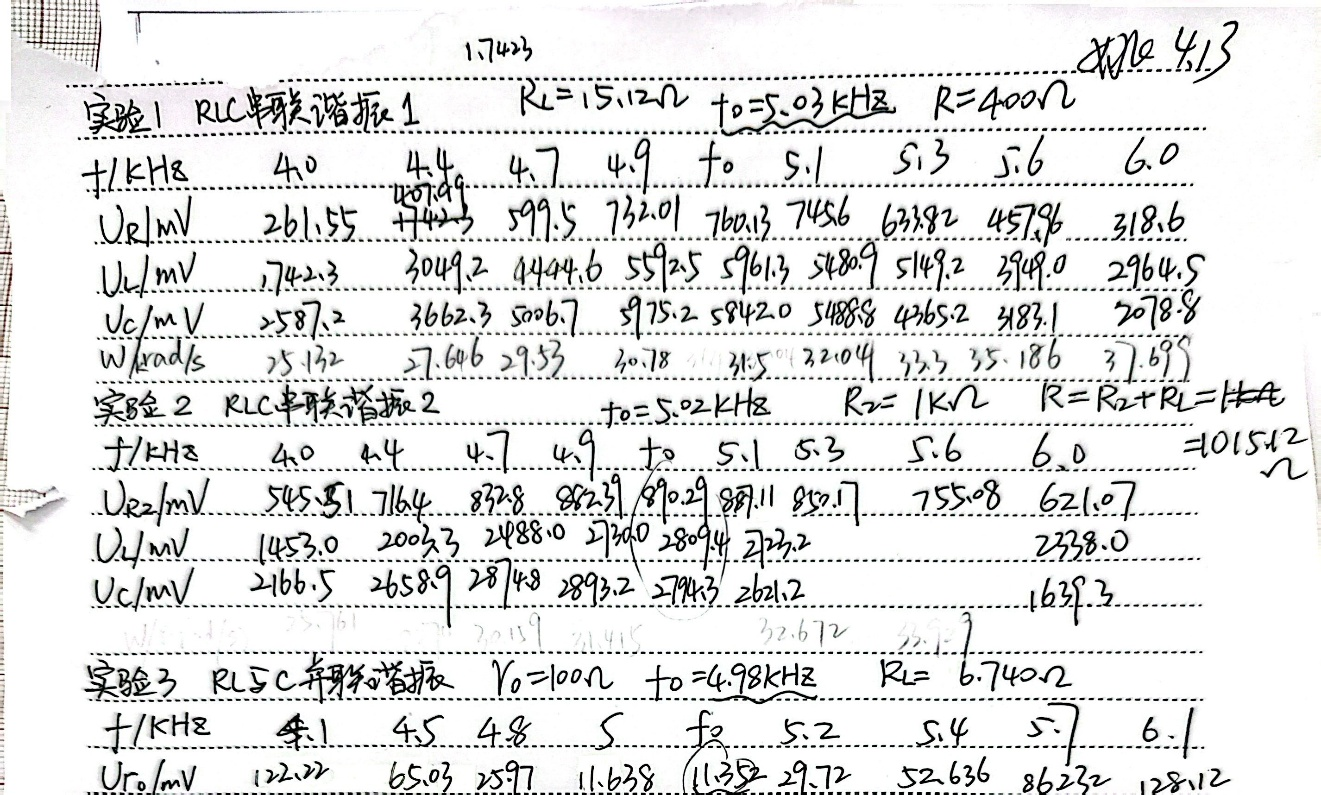 1.7423
4.13
实验1 RLC串联谐振1 RL=15.12Ω f0=5.03KHz R=400Ω
f/KHz 4.0 4.4 4.7 4.9 f0 5.1 5.3 5.6 6.0
407.99
UR/mV 261.55 1742.3 599.5 732.01 760.13 745.6 633.82 457.96 318.6
UL/mV 1742.3 3049.2 4444.6 5592.5 5961.3 5480.9 5149.2 3949.0 2964.5
UC/mV 2587.2 3662.3 5006.7 5975.2 5842.0 5488.8 4365.2 3183.1 2078.8
W/krad/s 25.132 27.646 29.53 30.78 31.5 32.04 33.3 35.186 37.699
实验2 RLC串联谐振2 f0=5.02KHz R2=1KΩ R=R2+RL=1KΩ
=1015.12Ω
f/KHz 4.0 4.4 4.7 4.9 f0 5.1 5.3 5.6 6.0
UR2/mV 545.51 716.4 832.8 882.39 890.29 887.11 850.17 755.08 621.07
UL/mV 1453.0 2003.3 2488.0 2730.0 2809.4 2723.2 2338.0
UC/mV 2166.5 2658.9 2874.8 2893.2 2794.3 2621.2 1639.3
30.159 31.415 32.672 33.929
实验3 RL与C并联谐振 r0=100Ω f0=4.98KHz RL=6.740Ω
f/KHz 4.1 4.5 4.8 5 f0 5.2 5.4 5.7 6.1
Ur0/mV 122.22 65.03 25.97 11.638 11.352 29.72 52.636 86.232 128.12